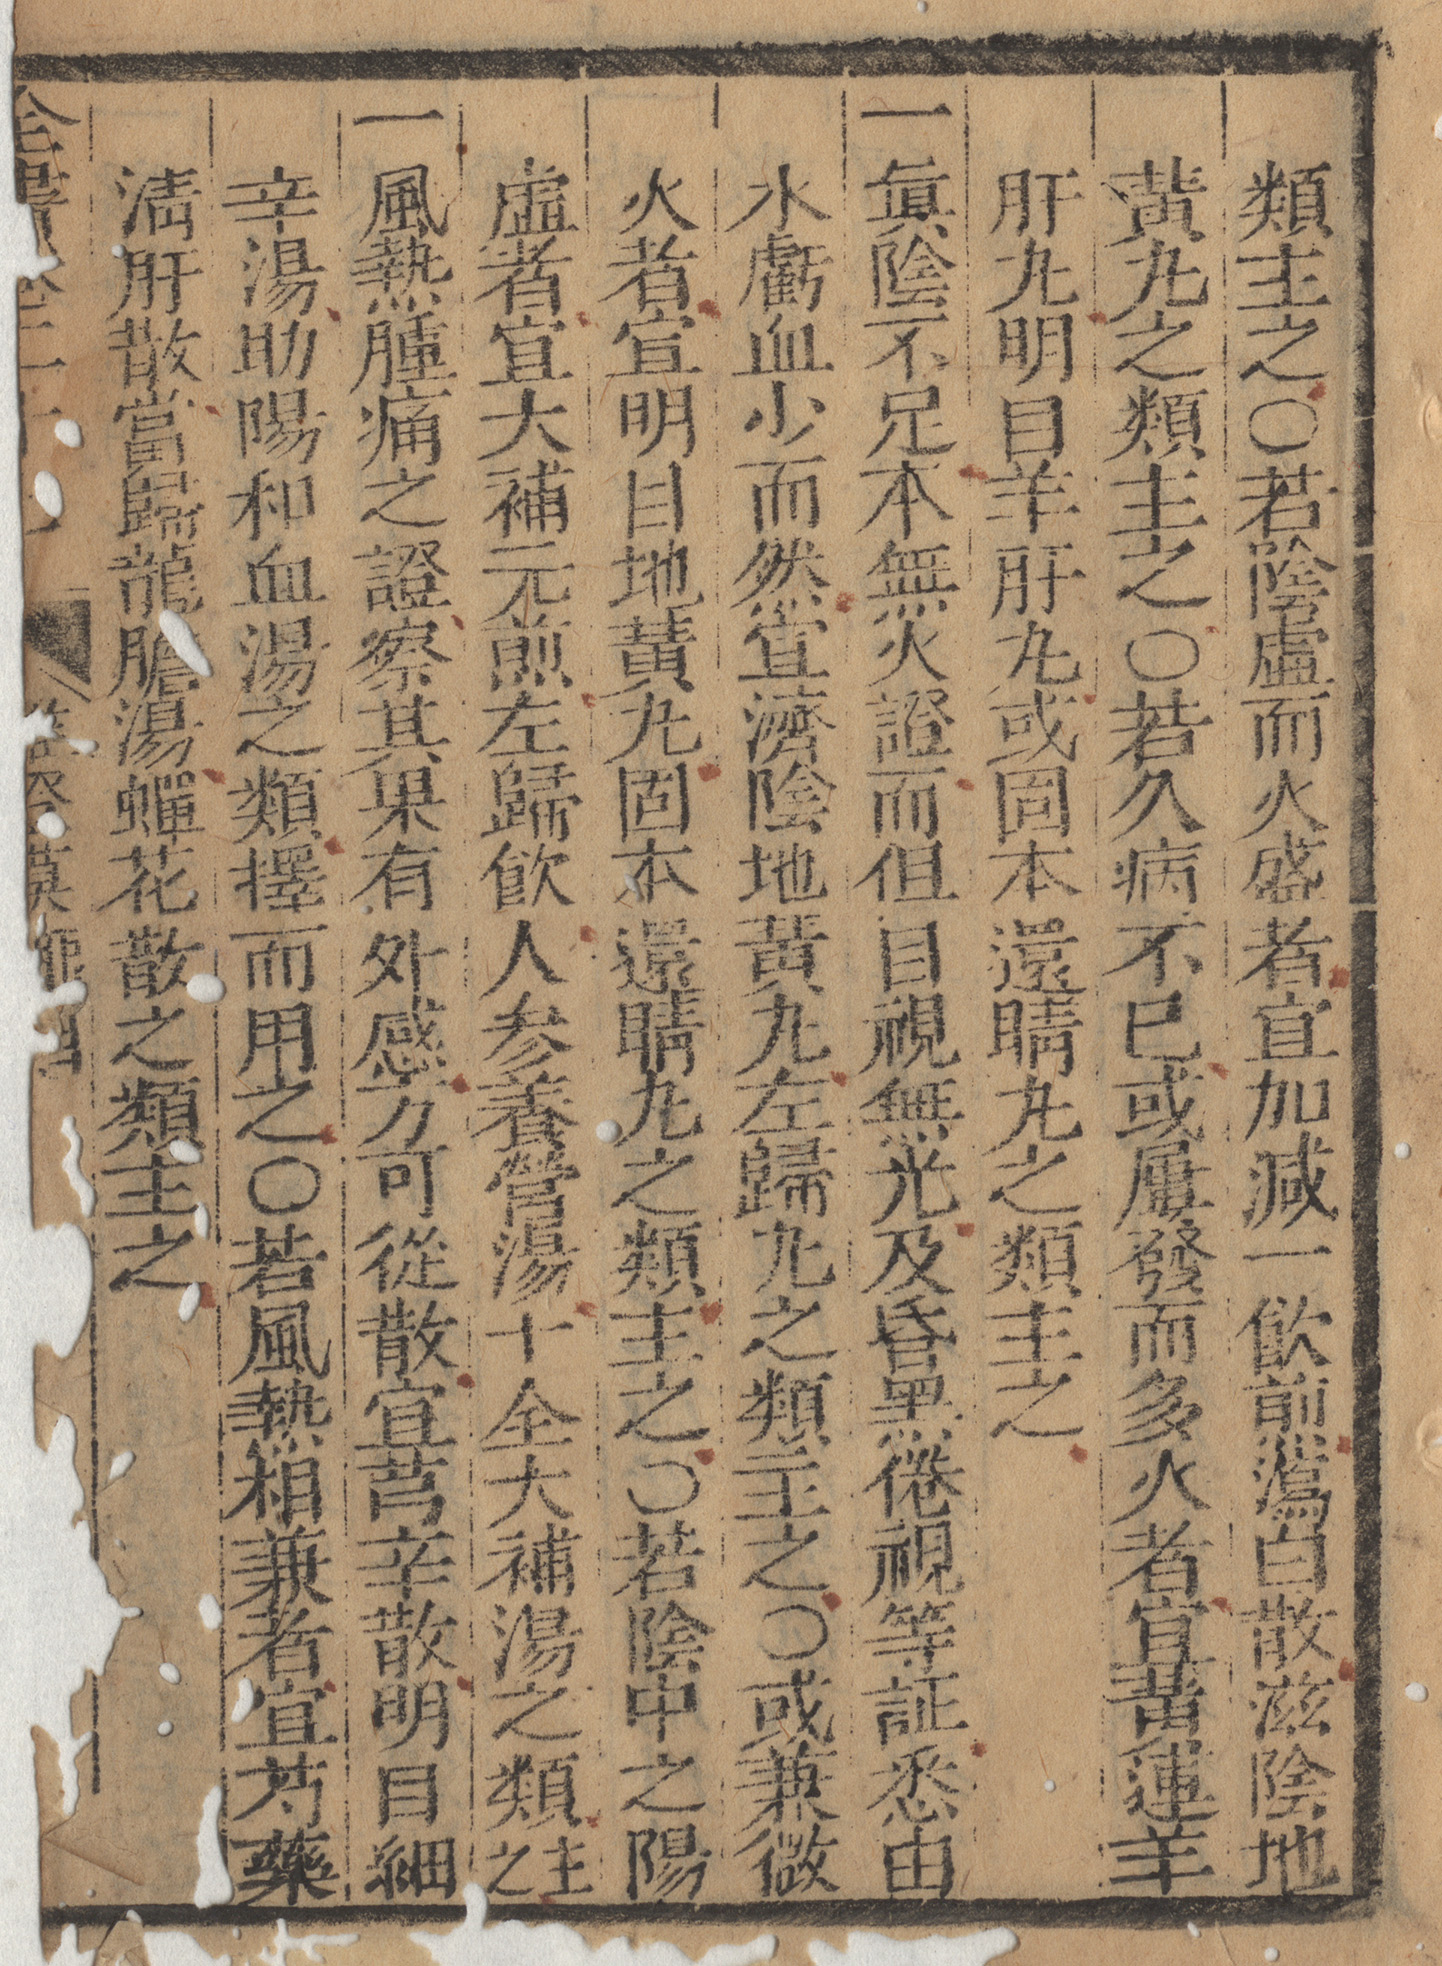 類主之〇若陰虛而火盛者宜加減一飲煎瀉白散滋陰地
黃丸之類主之〇若久病不已或屢發而多火者宜黃連羊
肝丸明目羊肝丸或固本還睛丸之類主之
一眞陰不足本無火證而但目視無光及昏黑倦視等証悉由
水虧血少而然宜濟陰地黃丸左歸丸之類主之〇或兼微
火者宜明目地黃丸固本還睛丸之類主之〇若陰中之陽
虛者宜大補元煎左歸飲人參養營湯十全大補湯之類主之
一風熱腫痛之證察其果有外感方可從散宜芎辛散明目細
辛湯助陽和血湯之類擇而用之〇若風熱相兼者宜芍藥
淸肝散當歸龍膽湯蟬花散之類主之
全書卷二十七